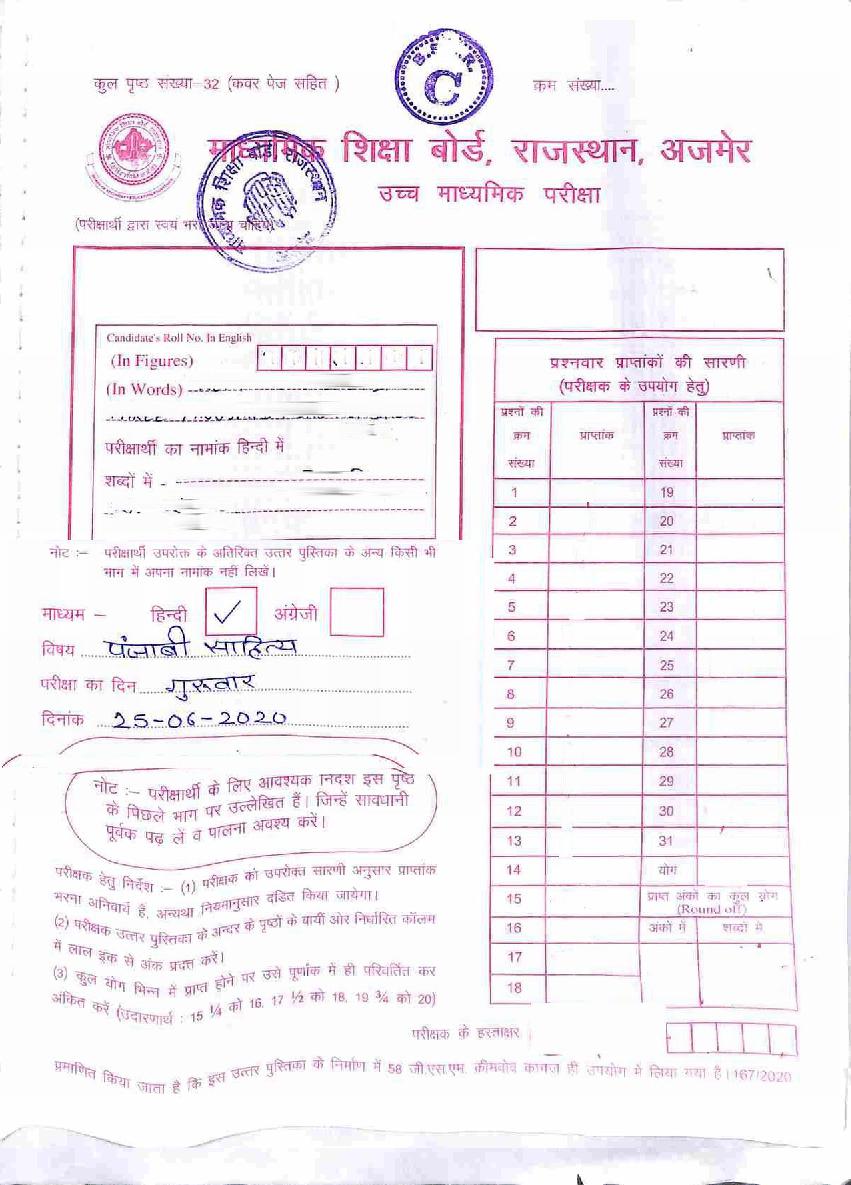 कुल पृष्ठ संख्या-32 (कवर पेज सहित )
B. F. R.
C
क्रम संख्या....
माध्यमिक शिक्षा बोर्ड, राजस्थान, अजमेर
उच्च माध्यमिक परीक्षा
(परीक्षार्थी द्वारा स्वयं भरा जाना चाहिये)
Candidate's Roll No. In English
(In Figures)
(In Words)
परीक्षार्थी का नामांक हिन्दी में
शब्दों में -
नोट :- परीक्षार्थी उपरोक्त के अतिरिक्त उत्तर पुस्तिका के अन्य किसी भी
भाग में अपना नामांक नहीं लिखें।
माध्यम – हिन्दी ✓ अंग्रेजी
विषय पंजाबी साहित्य
परीक्षा का दिन गुरुवार
दिनांक 25-06-2020
नोट :- परीक्षार्थी के लिए आवश्यक निदश इस पृष्ठ
के पिछले भाग पर उल्लेखित हैं। जिन्हें सावधानी
पूर्वक पढ़ लें व पालना अवश्य करें।
परीक्षक हेतु निर्देश :– (1) परीक्षक को उपरोक्त सारणी अनुसार प्राप्तांक
भरना अनिवार्य हैं, अन्यथा नियमानुसार दडित किया जायेगा।
(2) परीक्षक उत्तर पुस्तिका के अन्दर के पृष्ठों के बायीं ओर निर्धारित कॉलम
में लाल इक से अंक प्रदत्त करें।
(3) कुल योग भिन्न में प्राप्त होने पर उसे पूर्णाक में ही परिवर्तित कर
अंकित करें (उदारणार्थ : 15 ¼ को 16, 17 ½ को 18, 19 ¾ को 20)
प्रश्नवार प्राप्तांकों की सारणी
(परीक्षक के उपयोग हेतु)
प्रश्नों की क्रम संख्या प्राप्तांक प्रश्नों की क्रम संख्या प्राप्तांक
1 19
2 20
3 21
4 22
5 23
6 24
7 25
8 26
9 27
10 28
11 29
12 30
13 31
14 योग
15 प्राप्त अंको का कुल योग (Round off)
16 अंकों में शब्दों में
17
18
परीक्षक के हस्ताक्षर
प्रमाणित किया जाता है कि इस उत्तर पुस्तिका के निर्माण में 58 जी.एस.एम. क्रीमवोव कागज ही उपयोग मे लिया गया है।167/2020